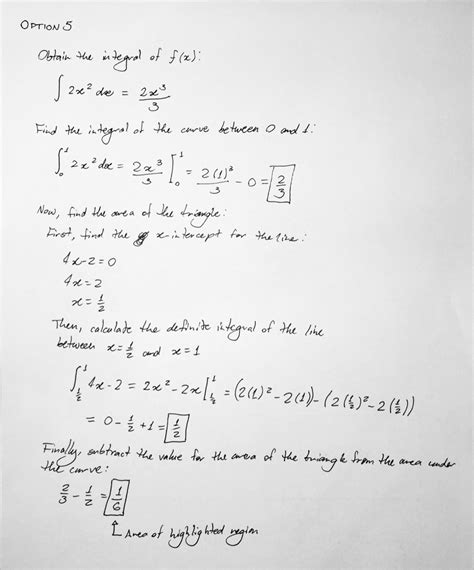 OPTION 5
Obtain the integral of f(x):
∫ 2x² dx = 2x³/3
Find the integral of the curve between 0 and 1:
∫₀¹ 2x² dx = 2x³/3 [₀¹ = 2(1)³/3 - 0 = 2/3
Now, find the area of the triangle:
First, find the x-intercept for the line:
4x-2=0
4x=2
x=1/2
Then, calculate the definite integral of the line
between x=1/2 and x=1
∫½¹ 4x-2 = 2x²-2x|½¹ = (2(1)²-2(1))-(2(1/2)²-2(1/2))
= 0-1/2+1 = 1/2
Finally, subtract the value for the area of the triangle from the area under
the curve:
2/3 - 1/2 = 1/6
Area of highlighted region